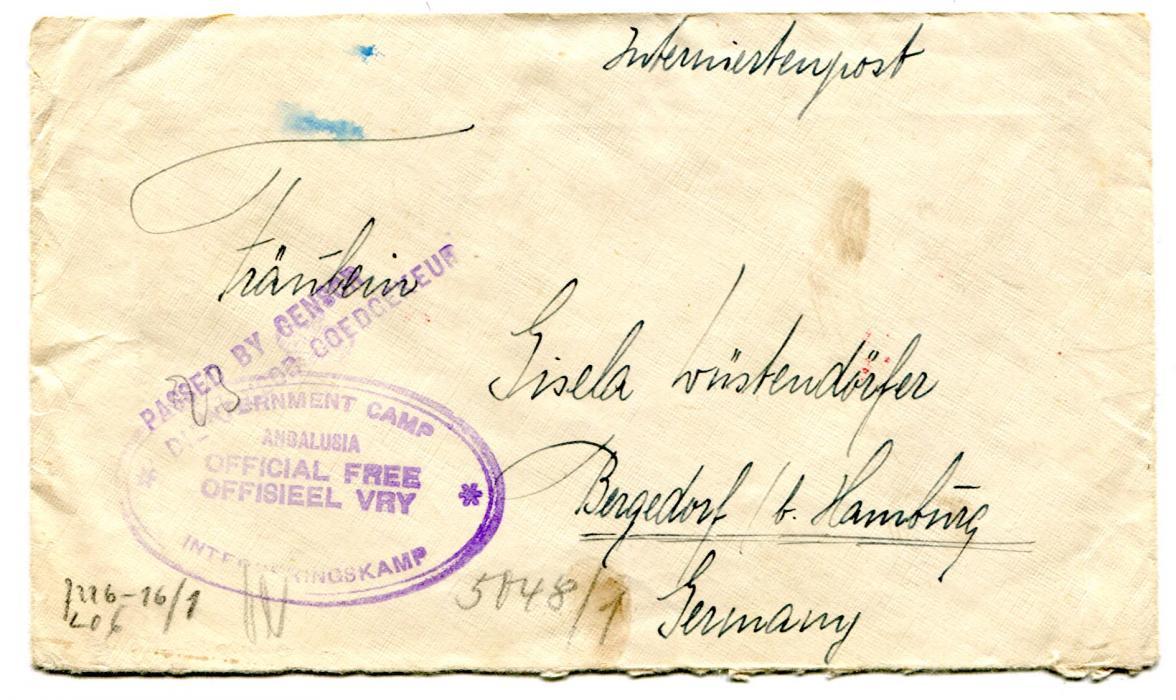 Interniertenpost
Fräulein
Gisela Wüstendörfer
Bergedorf / b. Hamburg
Germany
PASSED BY CENSOR
GOEDGEKEUR
INTERNMENT CAMP
ANDALUSIA
OFFICIAL FREE
OFFISIEEL VRY
INTERNERINGSKAMP
5048/1